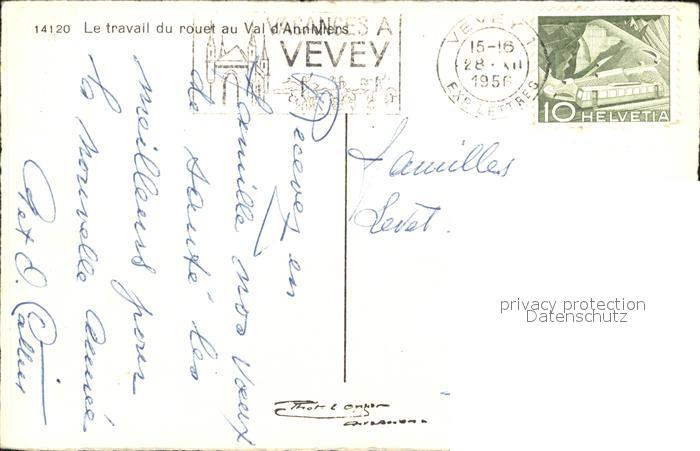 14120 Le travail du rouet au Val d'Anniviers
VACANCES A
VEVEY
VEVEY 1
15-16
28. XII
1956
EXP. LETTRES
10 HELVETIA
Recevez en
famille nos vœux
de santé les
meilleurs pour
la nouvelle année.
Familles
Levet.
privacy protection
Datenschutz